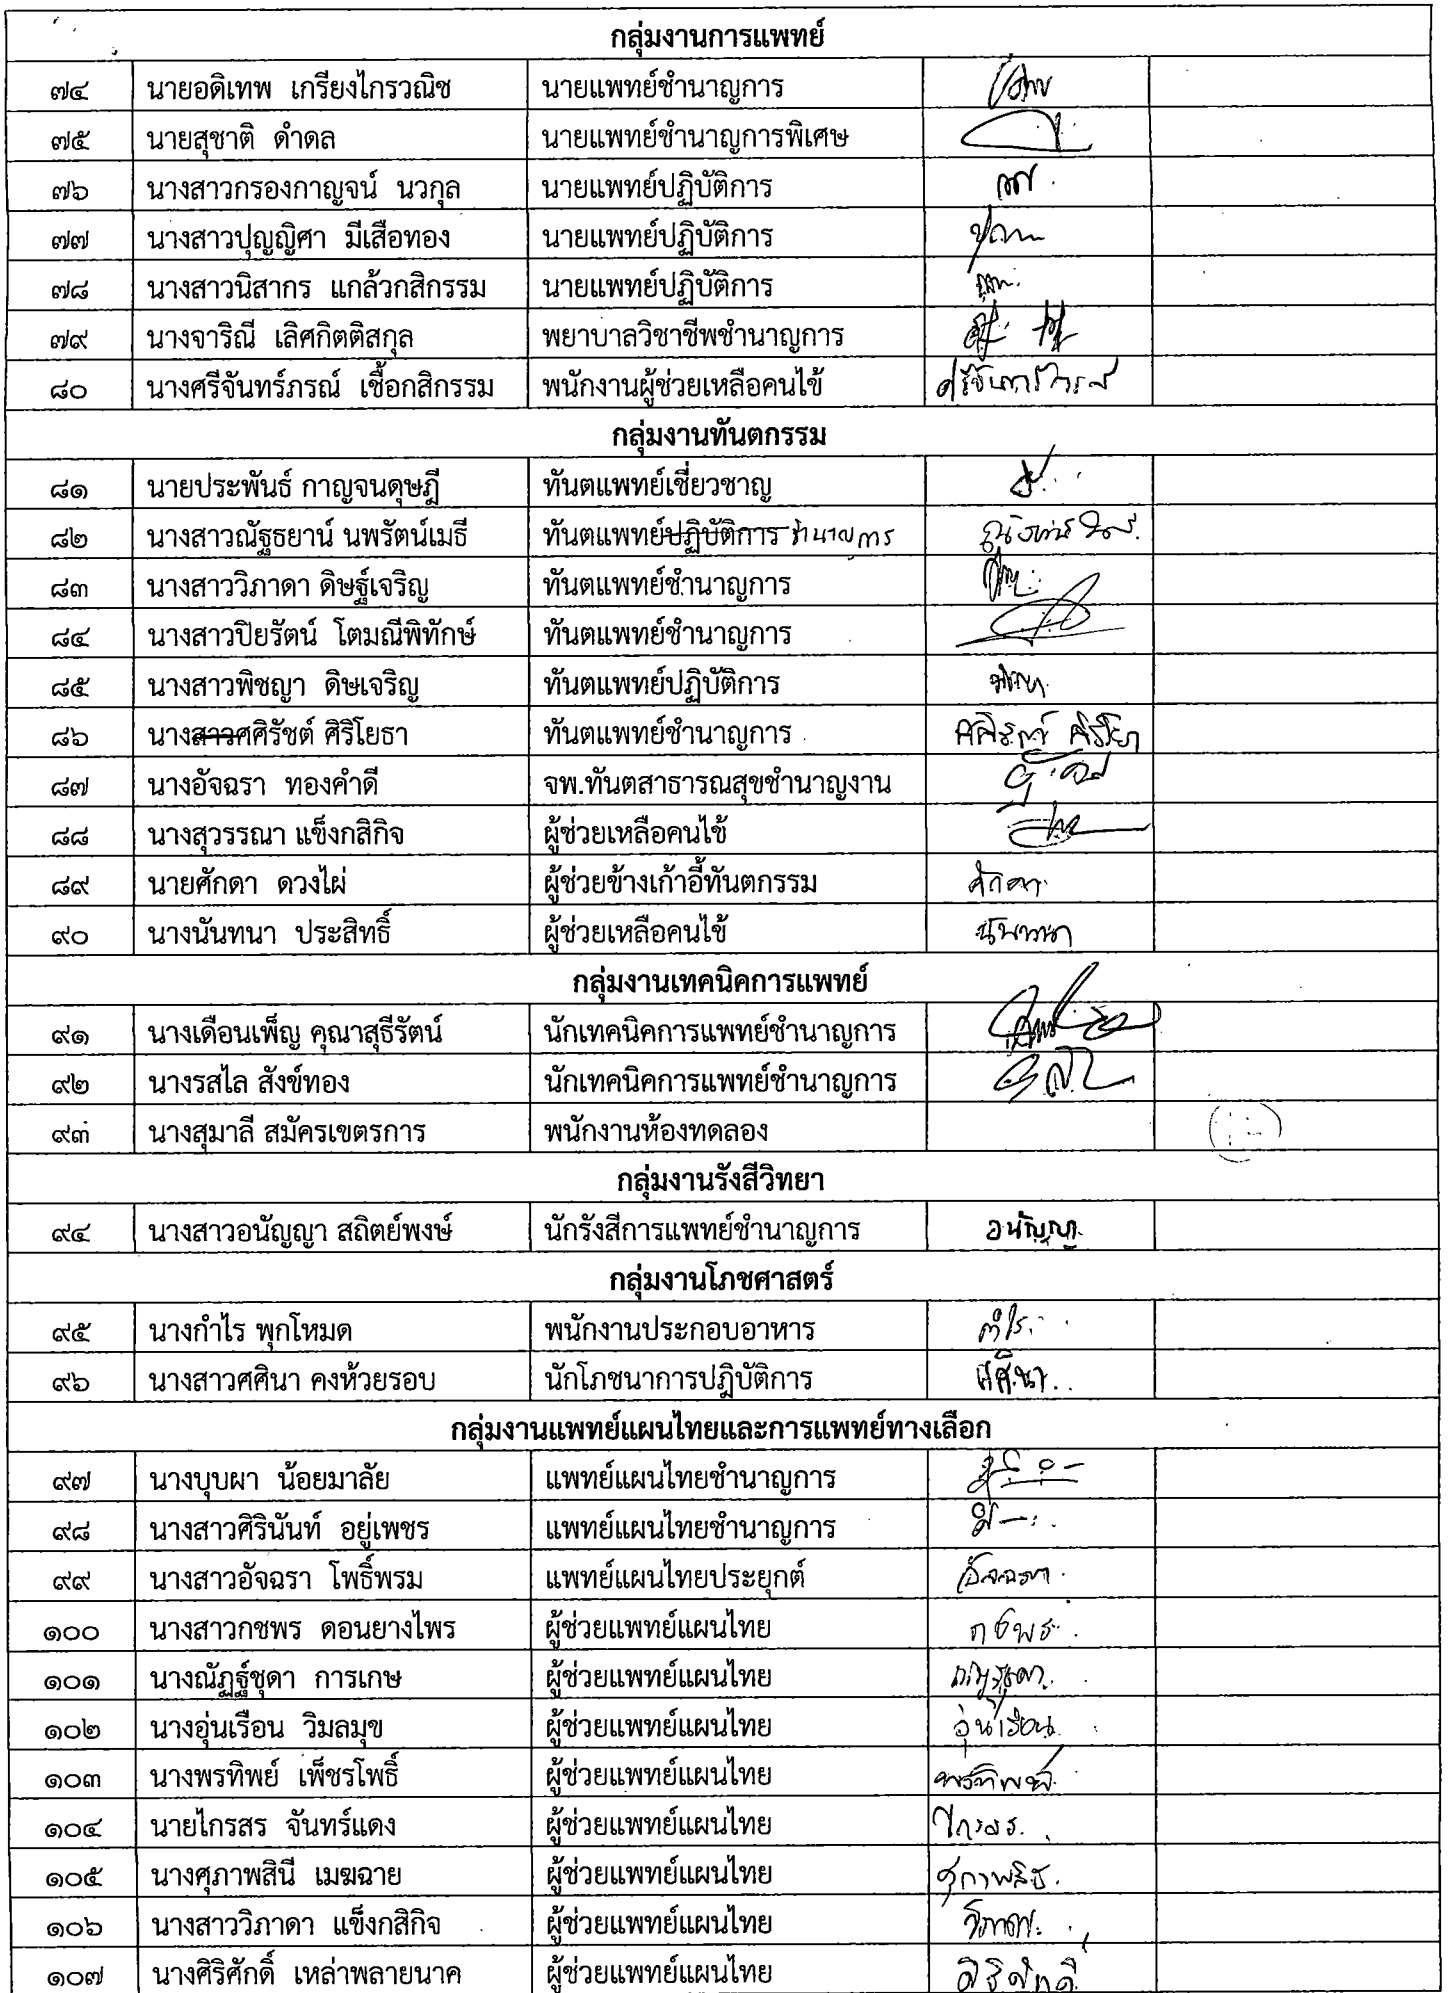 กลุ่มงานการแพทย์
๗๔ นายอดิเทพ เกรียงไกรวณิช นายแพทย์ชำนาญการ
๗๕ นายสุชาติ ดำดล นายแพทย์ชำนาญการพิเศษ
๗๖ นางสาวกรองกาญจน์ นวกุล นายแพทย์ปฏิบัติการ
๗๗ นางสาวปุญญิศา มีเสือทอง นายแพทย์ปฏิบัติการ
๗๘ นางสาวนิสากร แกล้วกสิกรรม นายแพทย์ปฏิบัติการ
๗๙ นางจาริณี เลิศกิตติสกุล พยาบาลวิชาชีพชำนาญการ
๘๐ นางศรีจันทร์ภรณ์ เชื้อกสิกรรม พนักงานผู้ช่วยเหลือคนไข้
กลุ่มงานทันตกรรม
๘๑ นายประพันธ์ กาญจนดุษฎี ทันตแพทย์เชี่ยวชาญ
๘๒ นางสาวณัฐธยาน์ นพรัตน์เมธี ทันตแพทย์ปฏิบัติการ ชำนาญการ
๘๓ นางสาววิภาดา ดิษฐ์เจริญ ทันตแพทย์ชำนาญการ
๘๔ นางสาวปิยรัตน์ โตมณีพิทักษ์ ทันตแพทย์ชำนาญการ
๘๕ นางสาวพิชญา ดิษเจริญ ทันตแพทย์ปฏิบัติการ
๘๖ นางสาวศศิรัชต์ ศิริโยธา ทันตแพทย์ชำนาญการ
๘๗ นางอัจฉรา ทองคำดี จพ.ทันตสาธารณสุขชำนาญงาน
๘๘ นางสุวรรณา แข็งกสิกิจ ผู้ช่วยเหลือคนไข้
๘๙ นายศักดา ดวงไผ่ ผู้ช่วยข้างเก้าอี้ทันตกรรม ศักดา
๙๐ นางนันทนา ประสิทธิ์ ผู้ช่วยเหลือคนไข้ นันทนา
กลุ่มงานเทคนิคการแพทย์
๙๑ นางเดือนเพ็ญ คุณาสุธีรัตน์ นักเทคนิคการแพทย์ชำนาญการ
๙๒ นางรสไล สังข์ทอง นักเทคนิคการแพทย์ชำนาญการ
๙๓ นางสุมาลี สมัครเขตรการ พนักงานห้องทดลอง
กลุ่มงานรังสีวิทยา
๙๔ นางสาวอนัญญา สถิตย์พงษ์ นักรังสีการแพทย์ชำนาญการ อนัญญา
กลุ่มงานโภชศาสตร์
๙๕ นางกำไร พุกโหมด พนักงานประกอบอาหาร กำไร
๙๖ นางสาวศศินา คงห้วยรอบ นักโภชนาการปฏิบัติการ ศศินา
กลุ่มงานแพทย์แผนไทยและการแพทย์ทางเลือก
๙๗ นางบุบผา น้อยมาลัย แพทย์แผนไทยชำนาญการ
๙๘ นางสาวศิรินันท์ อยู่เพชร แพทย์แผนไทยชำนาญการ
๙๙ นางสาวอัจฉรา โพธิ์พรม แพทย์แผนไทยประยุกต์ อัจฉรา
๑๐๐ นางสาวกชพร ดอนยางไพร ผู้ช่วยแพทย์แผนไทย กชพร
๑๐๑ นางณัฏฐ์ชุดา การเกษ ผู้ช่วยแพทย์แผนไทย
๑๐๒ นางอุ่นเรือน วิมลมุข ผู้ช่วยแพทย์แผนไทย อุ่นเรือน
๑๐๓ นางพรทิพย์ เพ็ชรโพธิ์ ผู้ช่วยแพทย์แผนไทย พรทิพย์
๑๐๔ นายไกรสร จันทร์แดง ผู้ช่วยแพทย์แผนไทย ไกรสร
๑๐๕ นางศุภาพสินี เมฆฉาย ผู้ช่วยแพทย์แผนไทย
๑๐๖ นางสาววิภาดา แข็งกสิกิจ ผู้ช่วยแพทย์แผนไทย วิภาดา
๑๐๗ นางศิริศักดิ์ เหล่าพลายนาค ผู้ช่วยแพทย์แผนไทย ศิริศักดิ์